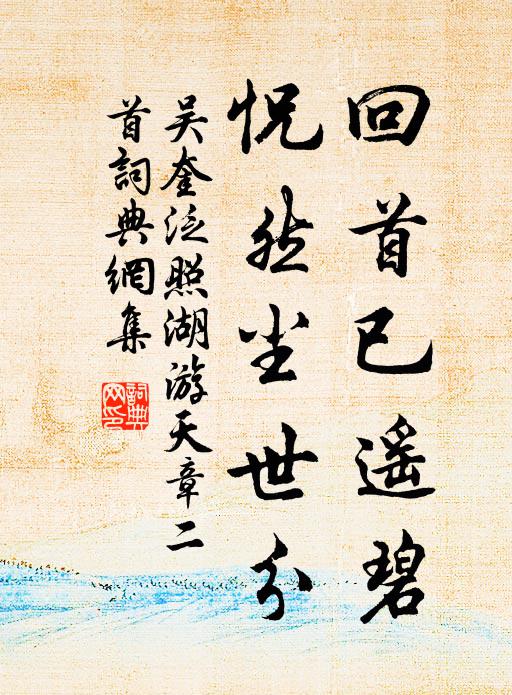 回首已遥碧
怳然尘世分
吴奎泛照湖游天章二
首詞典網集
詞典
网印